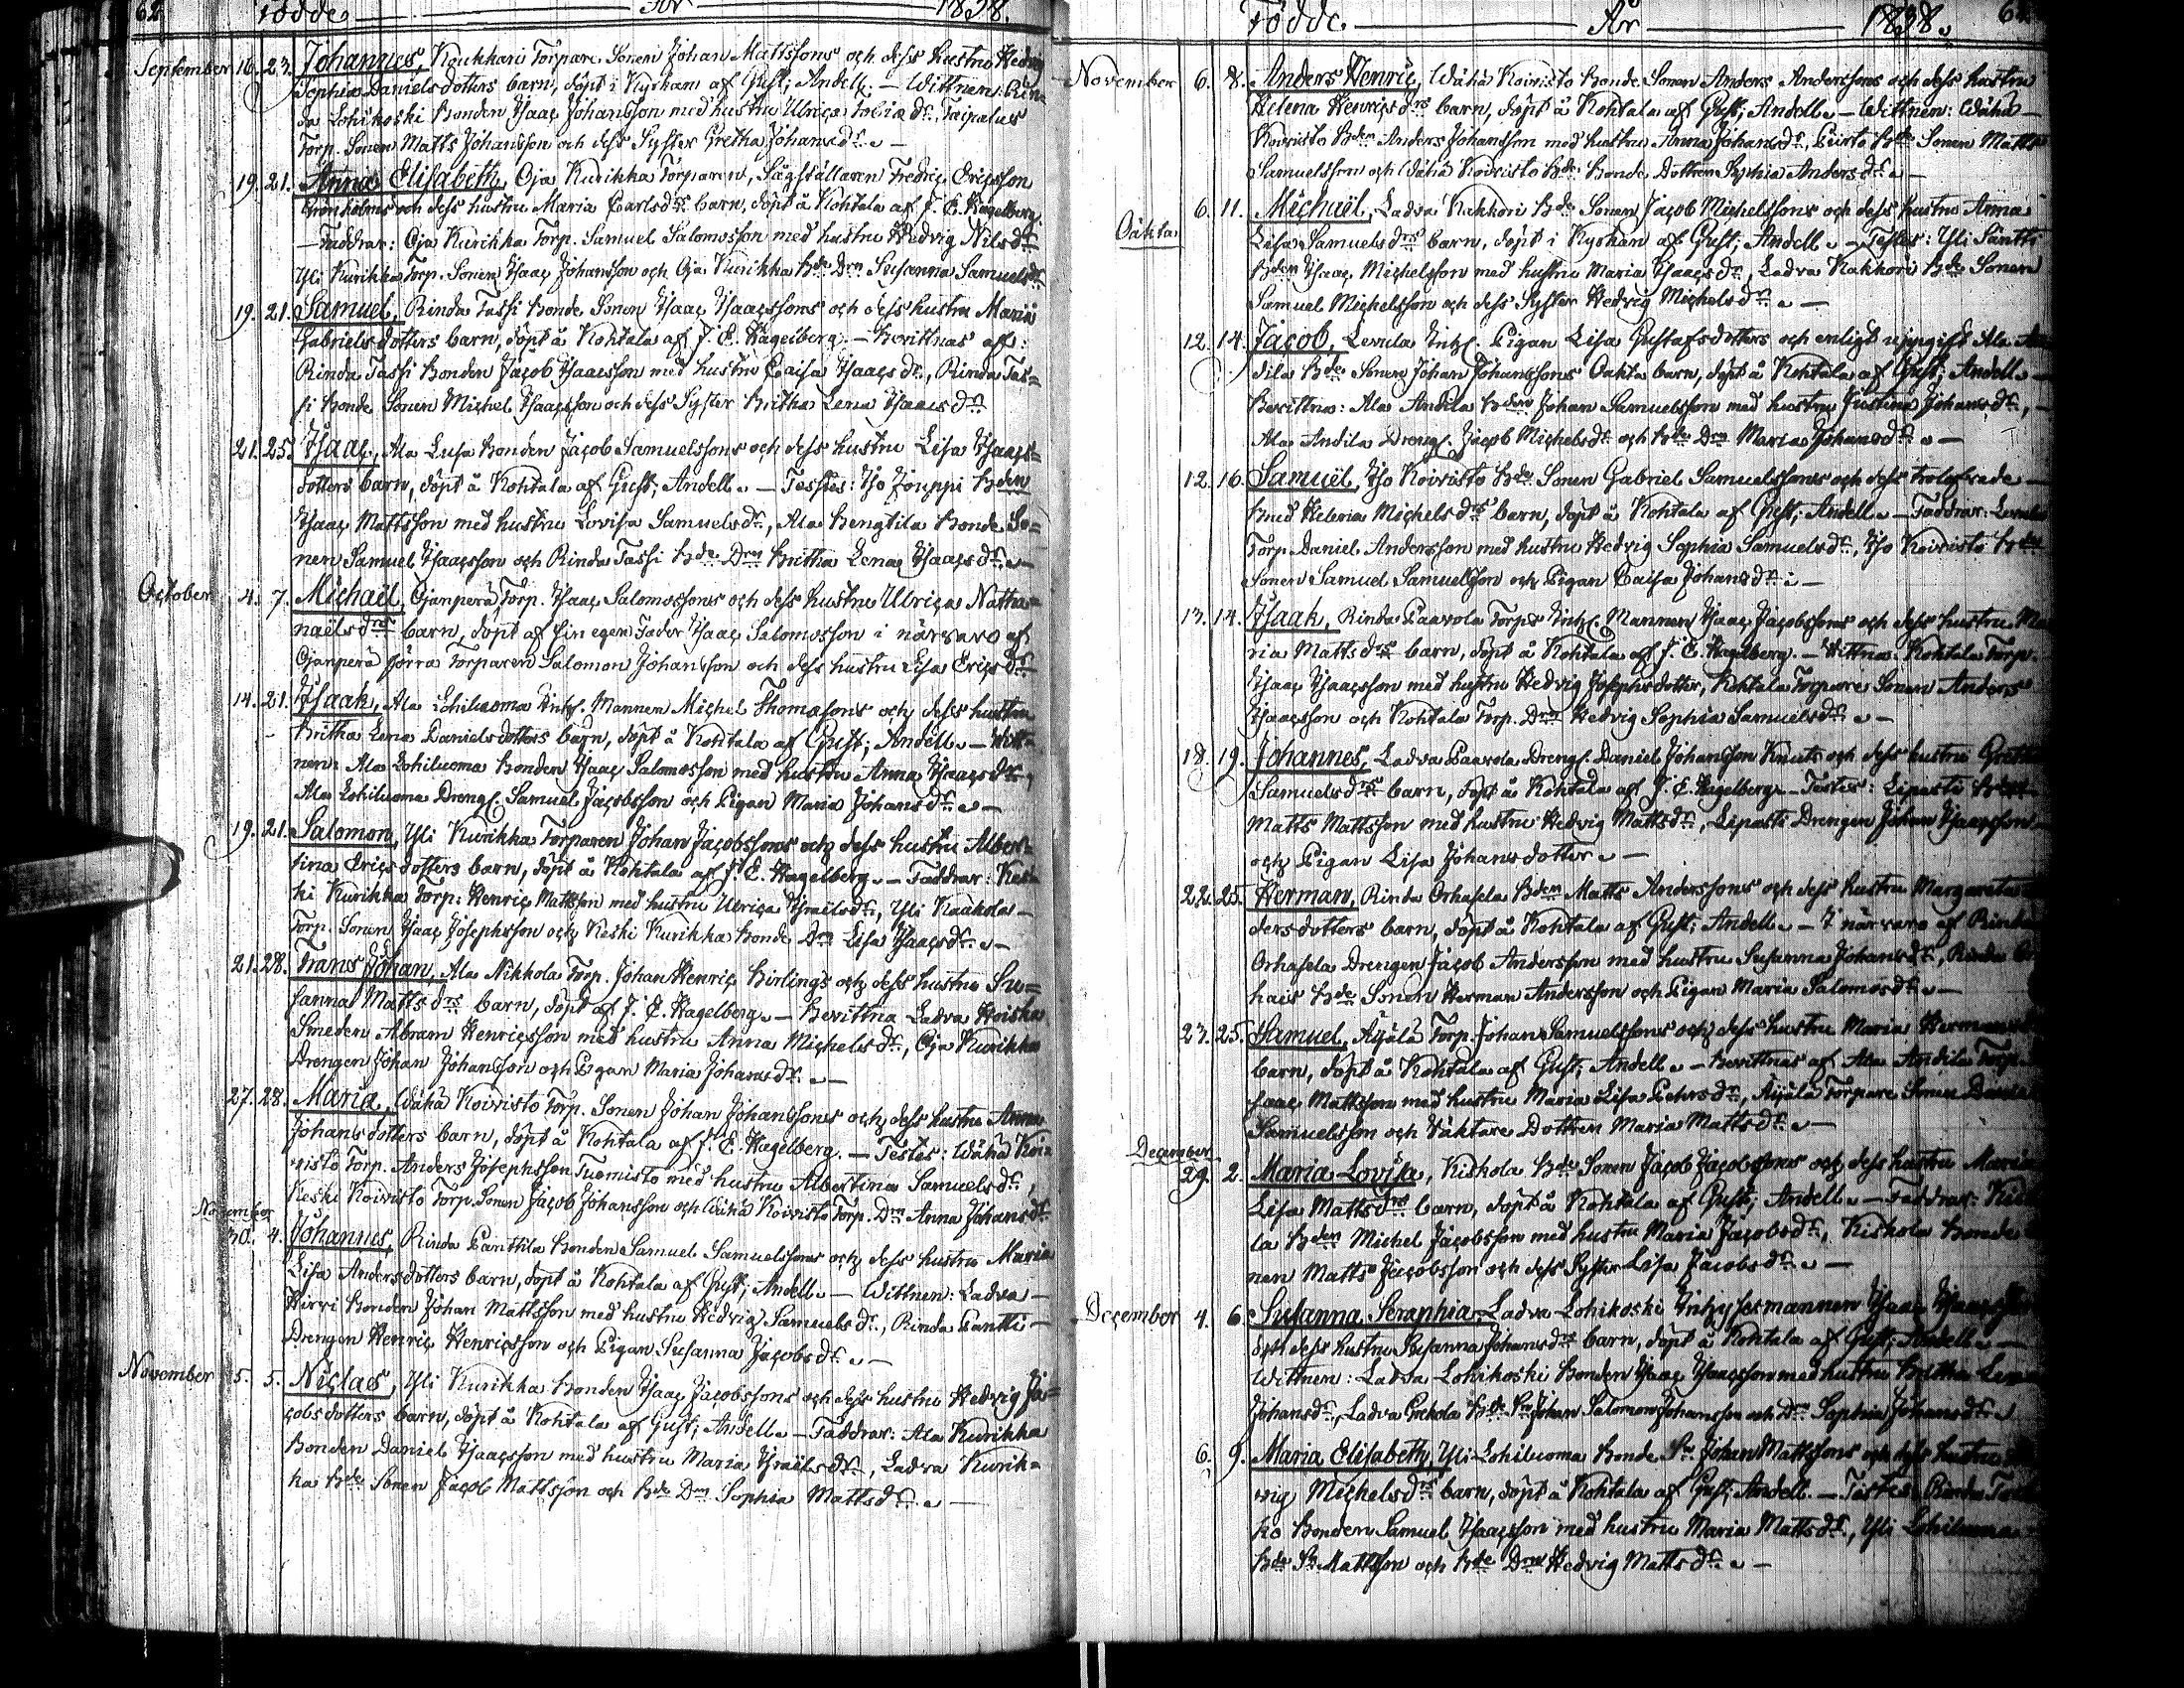 62 Födde År 1838.
September 16. 23. Johannes, Koukkari Torpare Sonen Johan Mattssons och dess hustru Hedvig
Sophia Daniels dotters barn, döpt i Kyrkan af Gust; Andell; — Wittnen: Rin-
da Lohikoski Bonden Isaac Johansson med hustru Ulrica Tobiæ dr,
Torp. Sonen Matts Johansson och dess Syster Gretha Johans dr. —
19. 21. Anna Elisabeth, Oja Kurikka Torparen, Sågställaren Fredric Ericsson
Grönholms och dess hustru Maria Carls drs barn, döpt å Kohtala af J. E. Hagelberg.
— Faddrar: Oja Kurikka Torp. Samuel Salomosson med hustru Hedvig Nils dr
Yli Kurikka Torp. Sonen Isaac Johansson och Oja Kurikka Bde Drn Susanna Samuels dr
19. 21. Samuel, Rinda Tassi Bonde Sonen Isaac Isaacssons och dess hustru Maria
Gabriels dotters barn, döpt å Kohtala af J. E. Hagelberg. — Bevittnas af:
Rinda Tassi Bonden Jacob Isaacsson med hustru Caisa Isaacs dr, Rinda Tas-
si Bonde Sonen Michel Isaacsson och dess Syster Britha Lena Isaacs dr
21. 25. Isaac, Ala Lusa Bonden Jacob Samuelssons och dess hustru Lisa Isaacs-
dotters barn, döpt å Kohtala af Gust; Andell. — Testes: Iso Jouppi Bden
Isaac Mattsson med hustru Lovisa Samuels dr, Ala Bengtila Bonde So-
nen Samuel Isaacsson och Rinda Tassi Bde Drn Britha Lena Isaacs dr. —
October 4. 7. Michaël, Ojanperä Torp. Isaac Salomossons och dess hustru Ulrica Natha-
naëls drs barn, döpt af sin egen Fader Isaac Salomosson i närvaro af
Ojanperä förra Torparen Salomon Johansson och dess hustru Lisa Erics dr.
14. 21. Isaak, Ala Lohiluoma Inhs. Mannen Michel Thomasons och dess hustru
Britha Lena Daniels dotters barn, döpt å Kohtala af Gust; Andell. — Witt-
nen: Ala Lohiluoma Bonden Isaac Salomosson med hustru Anna Isaacs dr,
Ala Lohiluoma Drengs. Samuel Jacobsson och Pigan Maria Johans dr. —
19. 21. Salomon, Yli Kurikka Torparen Johan Jacobssons och dess hustru Alber-
tina Erics dotters barn, döpt å Kohtala af J. E. Hagelberg. — Faddrar: Kes-
ki Kurikka Torp: Henric Mattsson med hustru Ulrica Israëls dr, Yli Kaakola —
Torp. Sonen Isaac Josephsson och Keski Kurikka Bonde Drn Lisa Isaacs dr. —
21. 28. Frans Johan, Ala Nikkola Torp. Johan Henric Birlings och dess hustru Su-
sanna Matts drs barn, döpt af J. E. Hagelberg. — Bevittna Ladva Hoiska
Smeden Abram Henricsson med hustru Anna Michels dr, Oja Kurikka
Drengen Johan Johansson och Pigan Maria Johans dr. —
27. 28. Maria, Wähä Koivisto Torp. Sonen Johan Johanssons och dess hustru Anna
Johans dotters barn, döpt å Kohtala af J. E. Hagelberg. — Testes: Wähä Koi-
visto Torp. Anders Josephsson Tuomisto med hustru Albertina Samuels dr,
Keski Koivisto Torp. Sonen Jacob Johansson och Wähä Koivisto Torp. Drn Anna Johans dr.
November
30. 4. Johannes, Rinda Panttila Bonden Samuel Samuelssons och dess hustru Maria
Lisa Anders dotters barn, döpt å Kohtala af Gust; Andell. — Wittnen: Ladva —
Hirri Bonden Johan Mattsson med hustru Hedvig Samuels dr, Rinda Pantti —
Drengen Henric Henricsson och Pigan Susanna Jacobs dr. —
November 5. 5. Niclas, Yli Kurikka Bonden Isaac Jacobssons och dess hustru Hedvig Ja-
cobs dotters barn, döpt å Kohtala af Gust; Andell. — Faddrar: Ala Kurikka
Bonden Daniel Isaacsson med hustru Maria Israëls dr, Ladva Kurik-
ka Bde Sonen Jacob Mattsson och Bde Drn Sophia Matts dr. —
Födde År 1838.
November 6. 8. Anders Henric, Wähä Koivisto Bonde Sonen Anders Anderssons och dess hustru
Helena Henrics drs barn, döpt å Kohtala af Gust; Andell. — Wittnen: Wähä —
Koivisto Bden Anders Johansson med hustru Anna Johans dr, Bde Sonen Matts
Samuelsson och Wähä Koivisto Bde: Bonde Dottren Sophia Anders dr. —
6. 11. Michaël, Ladva Kakkori Bde Sonen Jacob Michelssons och dess hustru Anna
Oäkta
Lisa Samuels drs barn, döpt i Kyrkan af Gust; Andell. — Testes: Yli Säntti
Bden Isaac Michelsson med hustru Maria Isaacs dr, Ladva Kakkori Bde Sonen
Samuel Michelsson och dess Syster Hedvig Michels dr. —
12. 14. Jacob, Levula Inhs. Pigan Lisa Gustafs dotters och enligt uppgift Ala An
dila Bde Sonen Johan Johanssons Oäkta barn, döpt å Kohtala af Gust; Andell. —
Bevittna: Ala Andila Bden Johan Samuelsson med hustru Justina Johans dr, —
Ala Andila Drengs. Jacob Michels dr och Bde Drn Maria Johans dr. —
12. 16. Samuël, Iso Koivisto Bde Sonen Gabriel Samuelssons och dess trolofvade —
Helena Michels drs barn, döpt å Kohtala af Gust; Andell. — Faddrar:
Torp Daniel Andersson med hustru Hedvig Sophia Samuels dr, Iso Koivisto Bde
Sonen Samuel Samuelsson och Pigan Caisa Johans dr. —
13. 14. Isaak, Rinda Paavola Torps Inhs. Mannen Isaac Jacobssons och dess hustru Ma
ria Matts drs barn, döpt å Kohtala af J. E. Hagelberg. — Vittna: Kohtala Torp.
Isaac Isaacsson med hustru Hedvig Josephs dotter, Kohtala Torpare Sonen Anders
Isaacsson och Kohtala Torp. Drn Hedvig Sophia Samuels dr. —
18. 19. Johannes, Ladva Paavola Drengs. Daniel Johansson Knuts och dess hustru Greta
Samuels drs barn, döpt å Kohtala af J. E. Hagelberg. — Testes: Lipasti Bden
Matts Mattsson med hustru Hedvig Matts dr, Lipasti Drengen Johan Isaacsson
och Pigan Lisa Johans dotter. —
22. 25. Herman, Rinda Orhasela Bden Matts Anderssons och dess hustru Margareta
ders dotters barn, döpt å Kohtala af Gust; Andell. — I närvaro af Rinda
Orhasela Drengen Jacob Andersson med hustru Susanna Johans dr, Rinda
Bde Sonen Herman Andersson och Pigan Maria Salomos dr. —
23. 25. Samuel, Äijälä Torp. Johan Samuelssons och dess hustru Maria Hermans
barn, döpt å Kohtala af Gust; Andell. — Bevittnas af Ala Andila Torp.
saac Mattsson med hustru Maria Lisa Pehrs dr, Äijälä Torpare Sonen Daniel
Samuelsson och Väktare Dottren Maria Matts dr. —
December
29. 2. Maria Lovisa, Kiskola Bde Sonen Jacob Jacobssons och dess hustru Maria
Lisa Matts drs barn, döpt å Kohtala af Gust; Andell. — Faddrar: Kisko
la Bden Michel Jacobsson med hustru Maria Jacobs dr, Kiskola Bonde
nen Matts Jacobsson och dess Syster Lisa Jacobs dr. —
December 4. 6. Susanna Seraphia, Ladva Lohikoski Inhysesmannen Isaac Isaacssons
och dess hustru Susanna Johans drs barn, döpt å Kohtala af Gust; Andell. —
Wittnen: Ladva Lohikoski Bonden Isaac Isaacsson med hustru Britha Lena
Johans dr, Ladva Grekola Bde Sn Johan Salomon Johansson och Drn Sophia Johans dr.
6. 9. Maria Elisabeth, Yli-Lohiluoma Bonde Sn Johan Mattssons och dess hustru
vig Michels drs barn, döpt å Kohtala af Gust; Andell. — Testes: Rinda
ko Bonden Samuel Isaacsson med hustru Maria Matts dr, Yli Lohiluoma
Bde Sn Mattsson och Bde Drn Hedvig Matts dr. —